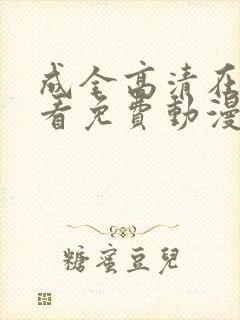 成全高清在
看免費動漫
糖蜜豆兒